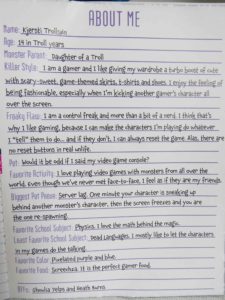 ABOUT ME
Name: Kjersti Trollsøn
Age: 14 in Troll years
Monster Parent: Daughter of a Troll
Killer Style: I am a gamer and I like giving my wardrobe a turbo boost of cute
with scary-sweet, game-themed skirts, t-shirts and shoes. I enjoy the feeling of
being fashionable, especially when I'm kicking another gamer's character all
over the screen.
Freaky Flaw: I am a control freak and more than a bit of a nerd. I think that's
why I like gaming, because I can make the characters I'm playing do whatever
I "tell" them to do... and if they don't, I can always reset the game. Alas, there are
no reset buttons in real unlife.
Pet: Would it be odd if I said my video game console?
Favorite Activity: I love playing video games with monsters from all over the
world. Even though we've never met face-to-face, I feel as if they are my friends.
Biggest Pet Peeve: Server lag. One minute your character is sneaking up
behind another monster's character, then the screen freezes and you are
the one re-spawning.
Favorite School Subject: Physics. I love the math behind the magic.
Least Favorite School Subject: Dead Languages. I mostly like to let the characters
in my games do the talking.
Favorite Color: Pixelated purple and blue.
Favorite Food: Screamza. It is the perfect gamer food.
BFFs: Shoula Yelps and Heath Burns